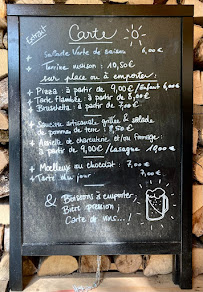 Extrait
Carte
+ Salade Verte de saison 6,00€
+ Terrine maison : 10,50€
sur place ou à emporter:
+ Pizza à partir de 9,00€/Enfant 6,00€
+ Tarte flambée : à partir de 8,00€
+ Bruschetta : à partir de 7,00€
+ Saucisse artisanale grillée & salade
de pommes de terre : 8,50€
+ Assiette de charcuterie et/ou fromage:
à partir de 9,00€/Lasagne 12,00€
+ Moelleux au chocolat : 7,00€
+ Tarte du jour 7,00€
& Boissons à emporter,
Bière pression,
Carte de vins...